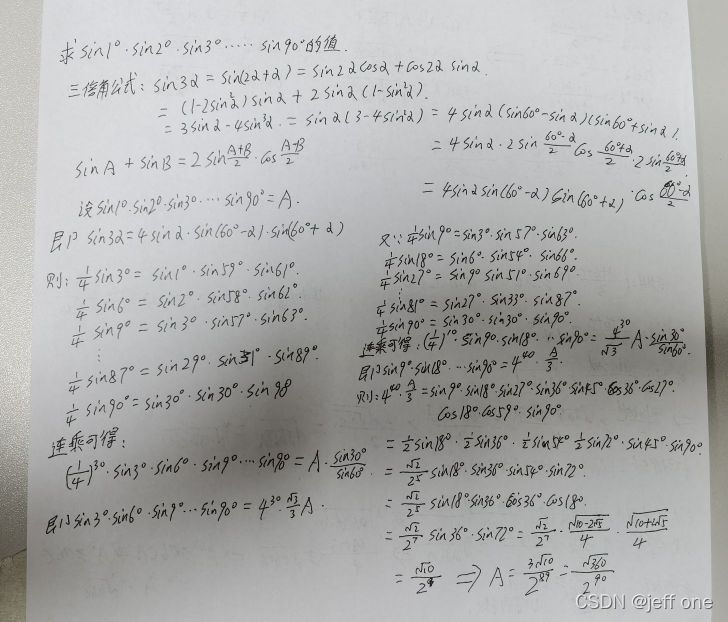 求 sin1°·sin2°·sin3°····· sin90°的值.
三倍角公式: sin3α = sin(2α+α) = sin2α cosα + cos2α sinα.
= (1-2sin²α) sinα + 2 sinα (1-sin²α).
= 3sinα - 4sin³α. = sinα (3-4sin²α) = 4 sinα (sin60°-sinα)(sin60°+sinα).
= 4 sinα · 2 sin (60°-α)/2 cos (60°+α)/2 · 2 sin (60°+α)/2
· cos (60°-α)/2
sinA + sinB = 2 sin (A+B)/2 · cos (A-B)/2
= 4 sinα sin(60°-α) sin(60°+α)
设 sin1°·sin2°·sin3°··· sin90° = A.
即 sin3α = 4 sinα · sin(60°-α) · sin(60°+α)
则: 1/4 sin3° = sin1° · sin59° · sin61°
1/4 sin6° = sin2° · sin58° · sin62°
1/4 sin9° = sin3° · sin57° · sin63°
⋮
1/4 sin87° = sin29° · sin31° · sin89°.
1/4 sin90° = sin30° · sin30° · sin90
连乘可得:
(1/4)³⁰ · sin3° · sin6° · sin9° ··· sin90° = A · sin30°/sin60°
即 sin3° · sin6° · sin9° ··· sin90° = 4³⁰ · √3/3 A.
又∵ 1/4 sin9° = sin3° · sin57° · sin63°.
1/4 sin18° = sin6° · sin54° · sin66°
1/4 sin27° = sin9° sin51° · sin69°
1/4 sin81° = sin27° · sin33° · sin87°
1/4 sin90° = sin30° · sin30° · sin90°.
连乘可得: (1/4)¹⁰ · sin9° · sin18° ··· sin90° = 4³⁰/√3 A · sin30°/sin60°
即 sin9° · sin18° ··· sin90° = 4⁴⁰ · A/3
则: 4⁴⁰ · A/3 = sin9° · sin18° · sin27° · sin36° sin45° · cos36° · cos27°.
cos18° · cos59° · sin90°
= 1/2 sin18° · 1/2 sin36° · 1/2 sin54° 1/2 sin72° · sin45° · sin90°
= √2/2⁵ sin18° · sin36° · sin54° · sin72°
= √2/2⁵ sin18° sin36° · cos36° · cos18°.
= √2/2⁷ sin36° · sin72° = √2/2⁷ · √(10-2√5)/4 · √(10+2√5)/4
= √10/2⁹ ⟹ A = 3√10/2⁸⁹ = √360/2⁹⁰
CSDN @jeff one